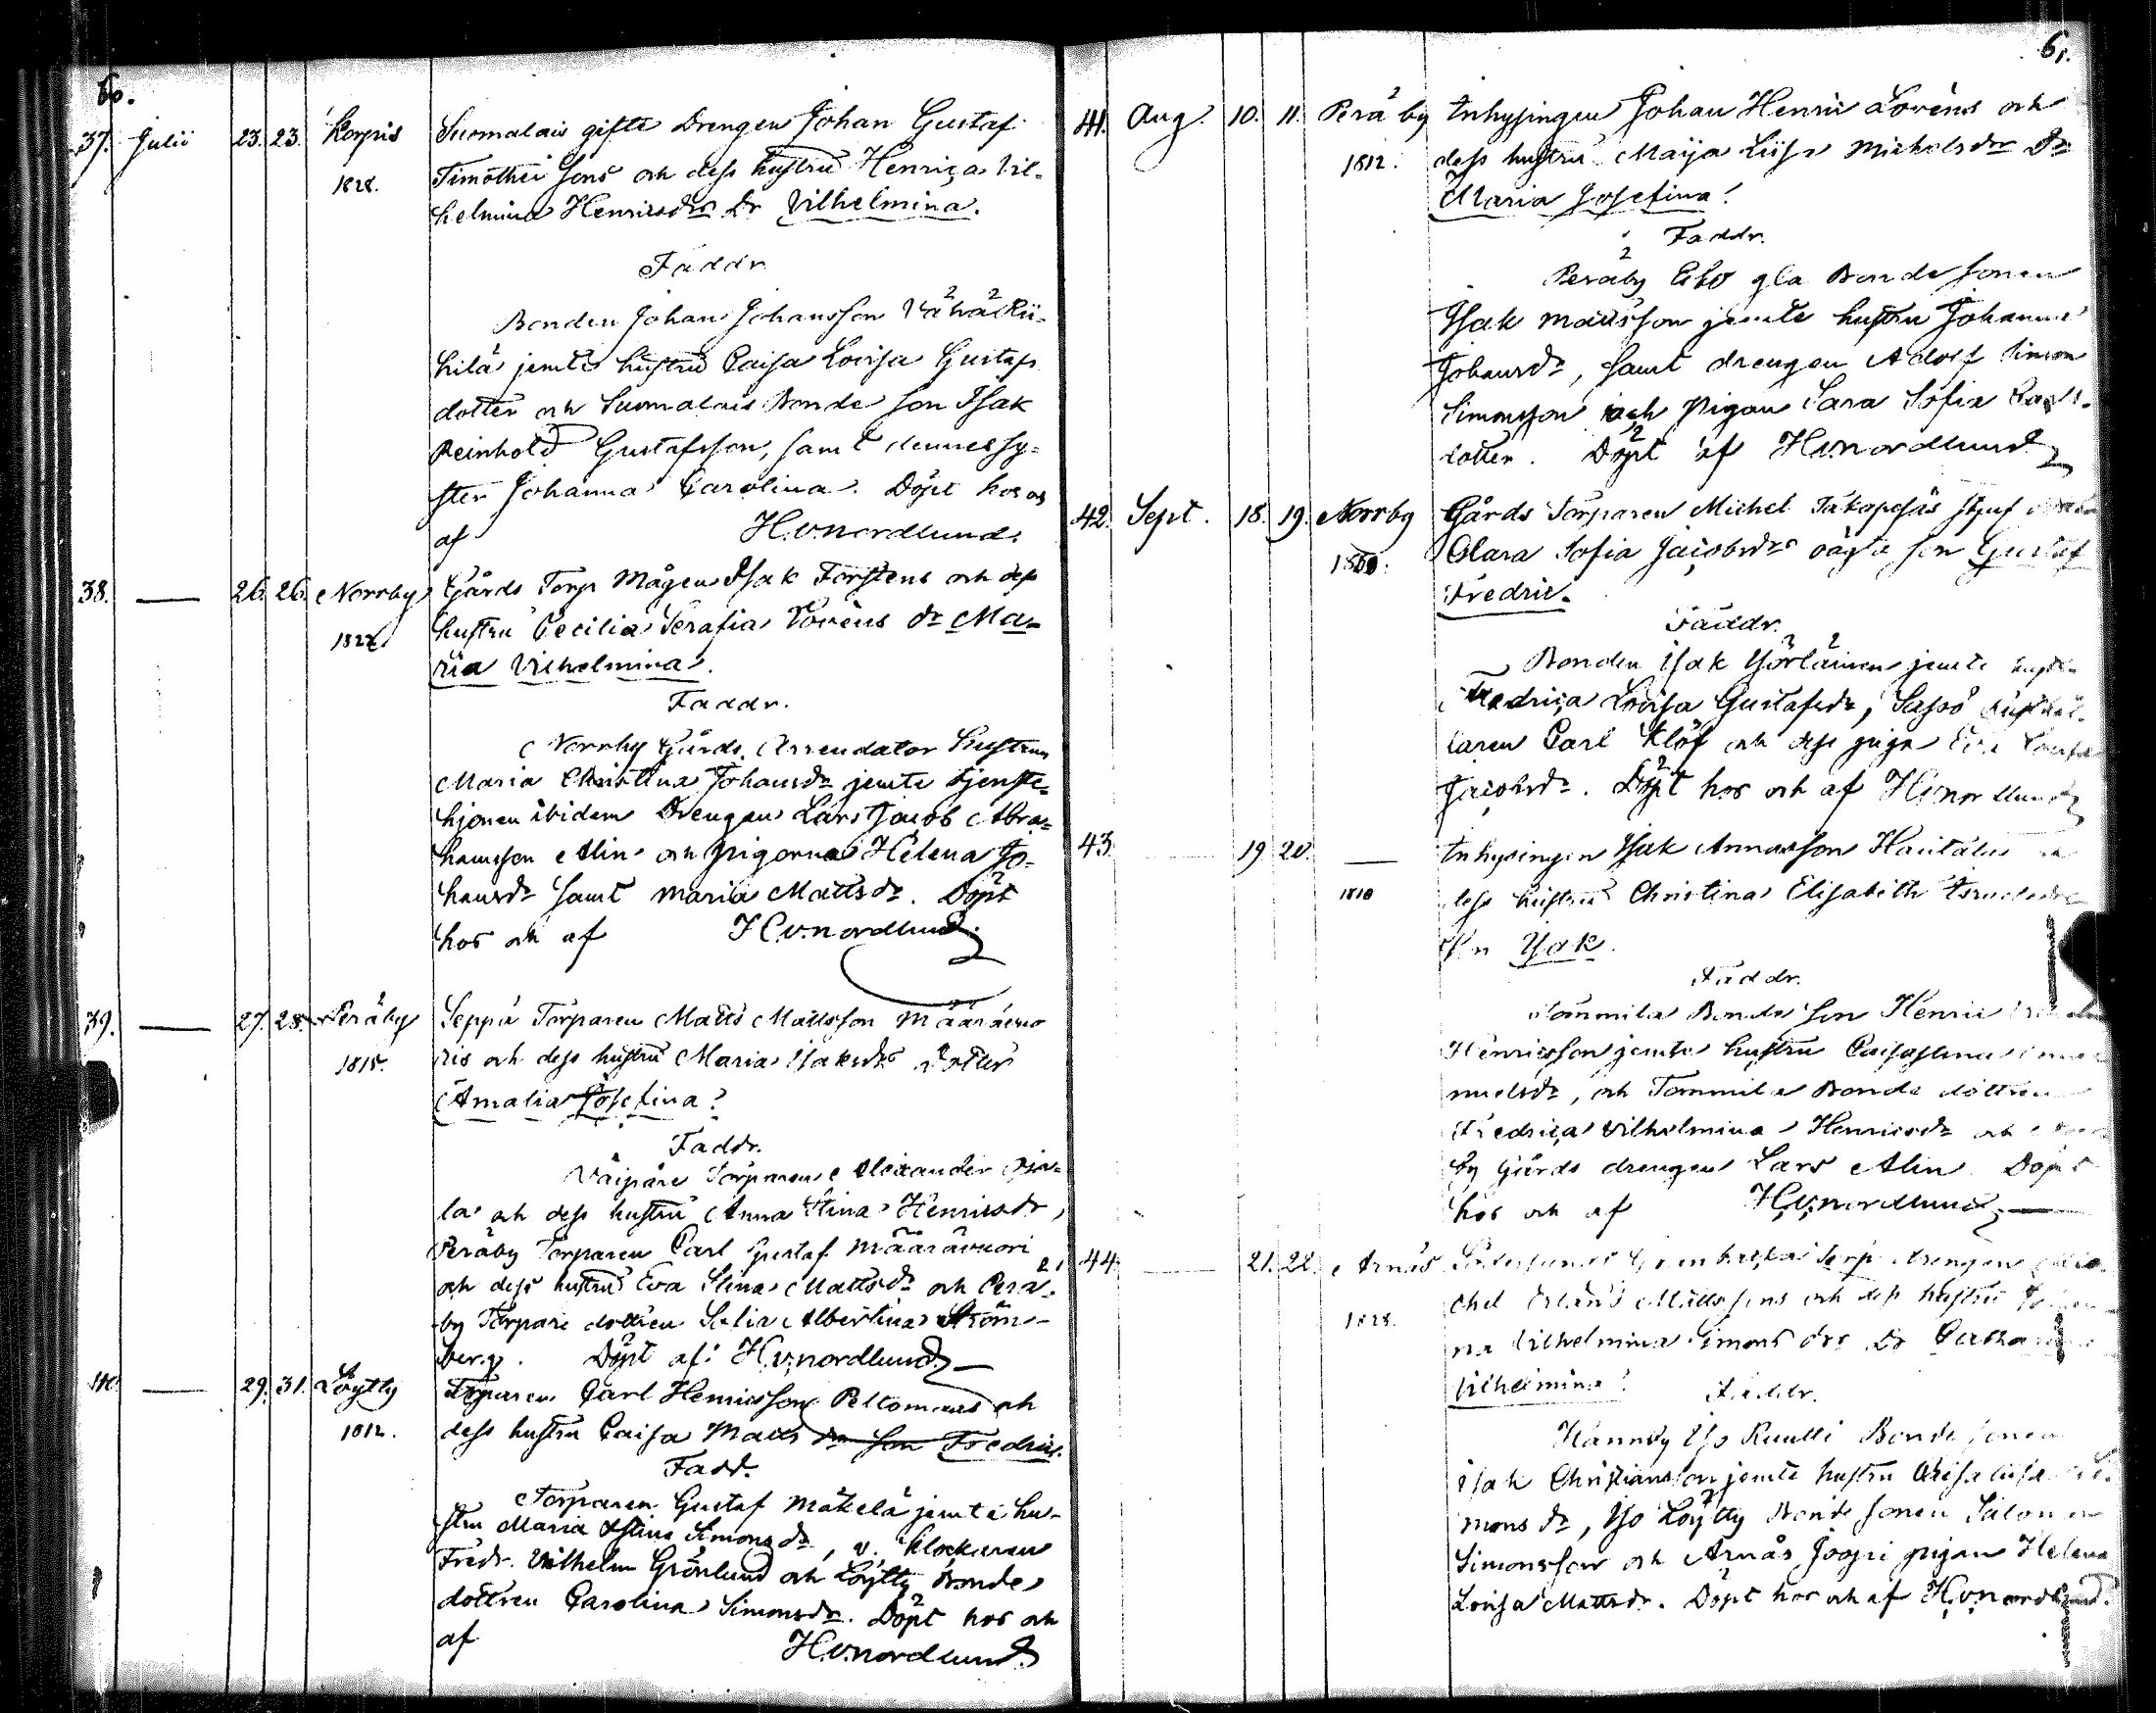 60.
37. Julii 23. 23. Korpis Suomalais gifte Drengen Johan Gustaf
1828. Timothei Sons och dess hustru Henrica Vil-
helmina Henricsdrs Dr Vilhelmina.
Faddr.
Bonden Johan Johansson Vähä Kii-
kilä jemte hustru Caisa Lovisa Gustafs
dotter och Suomalais Bonde Son Isak
Reinhold Gustafsson, samt dennes sy-
ster Johanna Carolina. Döpt hos och
af H.v.nordlund.
38. — 26. 26. Norrby Gårds Torp Mågen Isak Forstens och dess
hustru Cecilia Serafia Lovéns dr Ma-
ria Vilhelmina.
Faddr.
Norrby Gårds Arrendator hustrun
Maria Christina Johansdr jemte tjenste-
hjonen ibidem Drengen Lars Jacob Abra-
hamsson Alin och pigorna Helena Jo-
hansdr samt Maria Mattsdr. Döpt
hos och af H.v.nordlund.
39. — 27. 28. Peräby Seppä Torparen Matts Mattsson Määrävuo
1815. ris och dess hustru Maria Isaksdrs dotter
Amalia Josefina.
Faddr.
Torparen Alexander
la och dess hustru Anna Stina Henricsdr,
Peräby Torparen Carl Gustaf Määrävuori
och dess hustru Eva Stina Mattsdr och Perä-
by Torpare dottren Albertina Ström-
berg. Döpt af H.v.nordlund
40. — 29. 31. Löytty Torparen Carl Henricsson Peltomaas och
1812. dess hustru Caisa Matts dr son Fredric.
Fadd.
Torparen Gustaf Mäkelä jemte hu-
stru Maria Stina Simonsdr, v. klockaren
Fredr. Vilhelm Grönlund och Löytty Bonde
dottren Carolina Simonsdr. Döpt hos och
af H.v.nordlund
61.
41. Aug. 10. 11. Perä by Inhysingen Johan Henric Lovéns och
1812. dess hustru Maija Liisa Michelsdr Dr
Maria Josefina.
Faddr.
Peräby gla Bonde Sonen
Isak Mattsson jemte hustru Johanna
Johansdr, samt drengen Adolf Simon
Simonsson och pigan Sara Sofia
dotter. Döpt af H.v.nordlund
42. Sept. 18. 19. Norrby Gårds Torparen Michel
Clara Sofia Jacobsdrs oägta son Gustaf
Fredric.
Faddr.
Bonden Isak Yörläinen jemte hustru
Fredrica Lovisa Gustafsdr,
Carl Klöf och dess piga Eva Lovisa
Jacobsdr. Döpt hos och af H.v.nordlund
43. 19 20. — Inhysingen Isak Annasson
1810 dess hustru Christina Elisabeth
Son Isak.
Faddr.
Tommila Bonde Son Henric
Henricsson jemte hustru Caisa Stina
nuelsdr, och Tommila Bonde dottren
Fredrica Vilhelmina Henricsdr och
by Gårds drengen Lars Alin. Döpt
hos och af H.v.nordlund
44. — 21. 22. Arnäs Torp drengen Mi-
1828. chel Mattssons och dess hustru
na Vilhelmina Simons drs Dr
Vilhelmina.
Faddr.
Iso Ruutti Bonde Sonen
Isak Christiansson jemte hustru Si-
mons dr, Iso Löytty Bonde Sonen Salomon
Simonsson och Arnäs Joopi pigan Helena
Lovisa Mattsdr. Döpt hos och af H.v.nordlund.